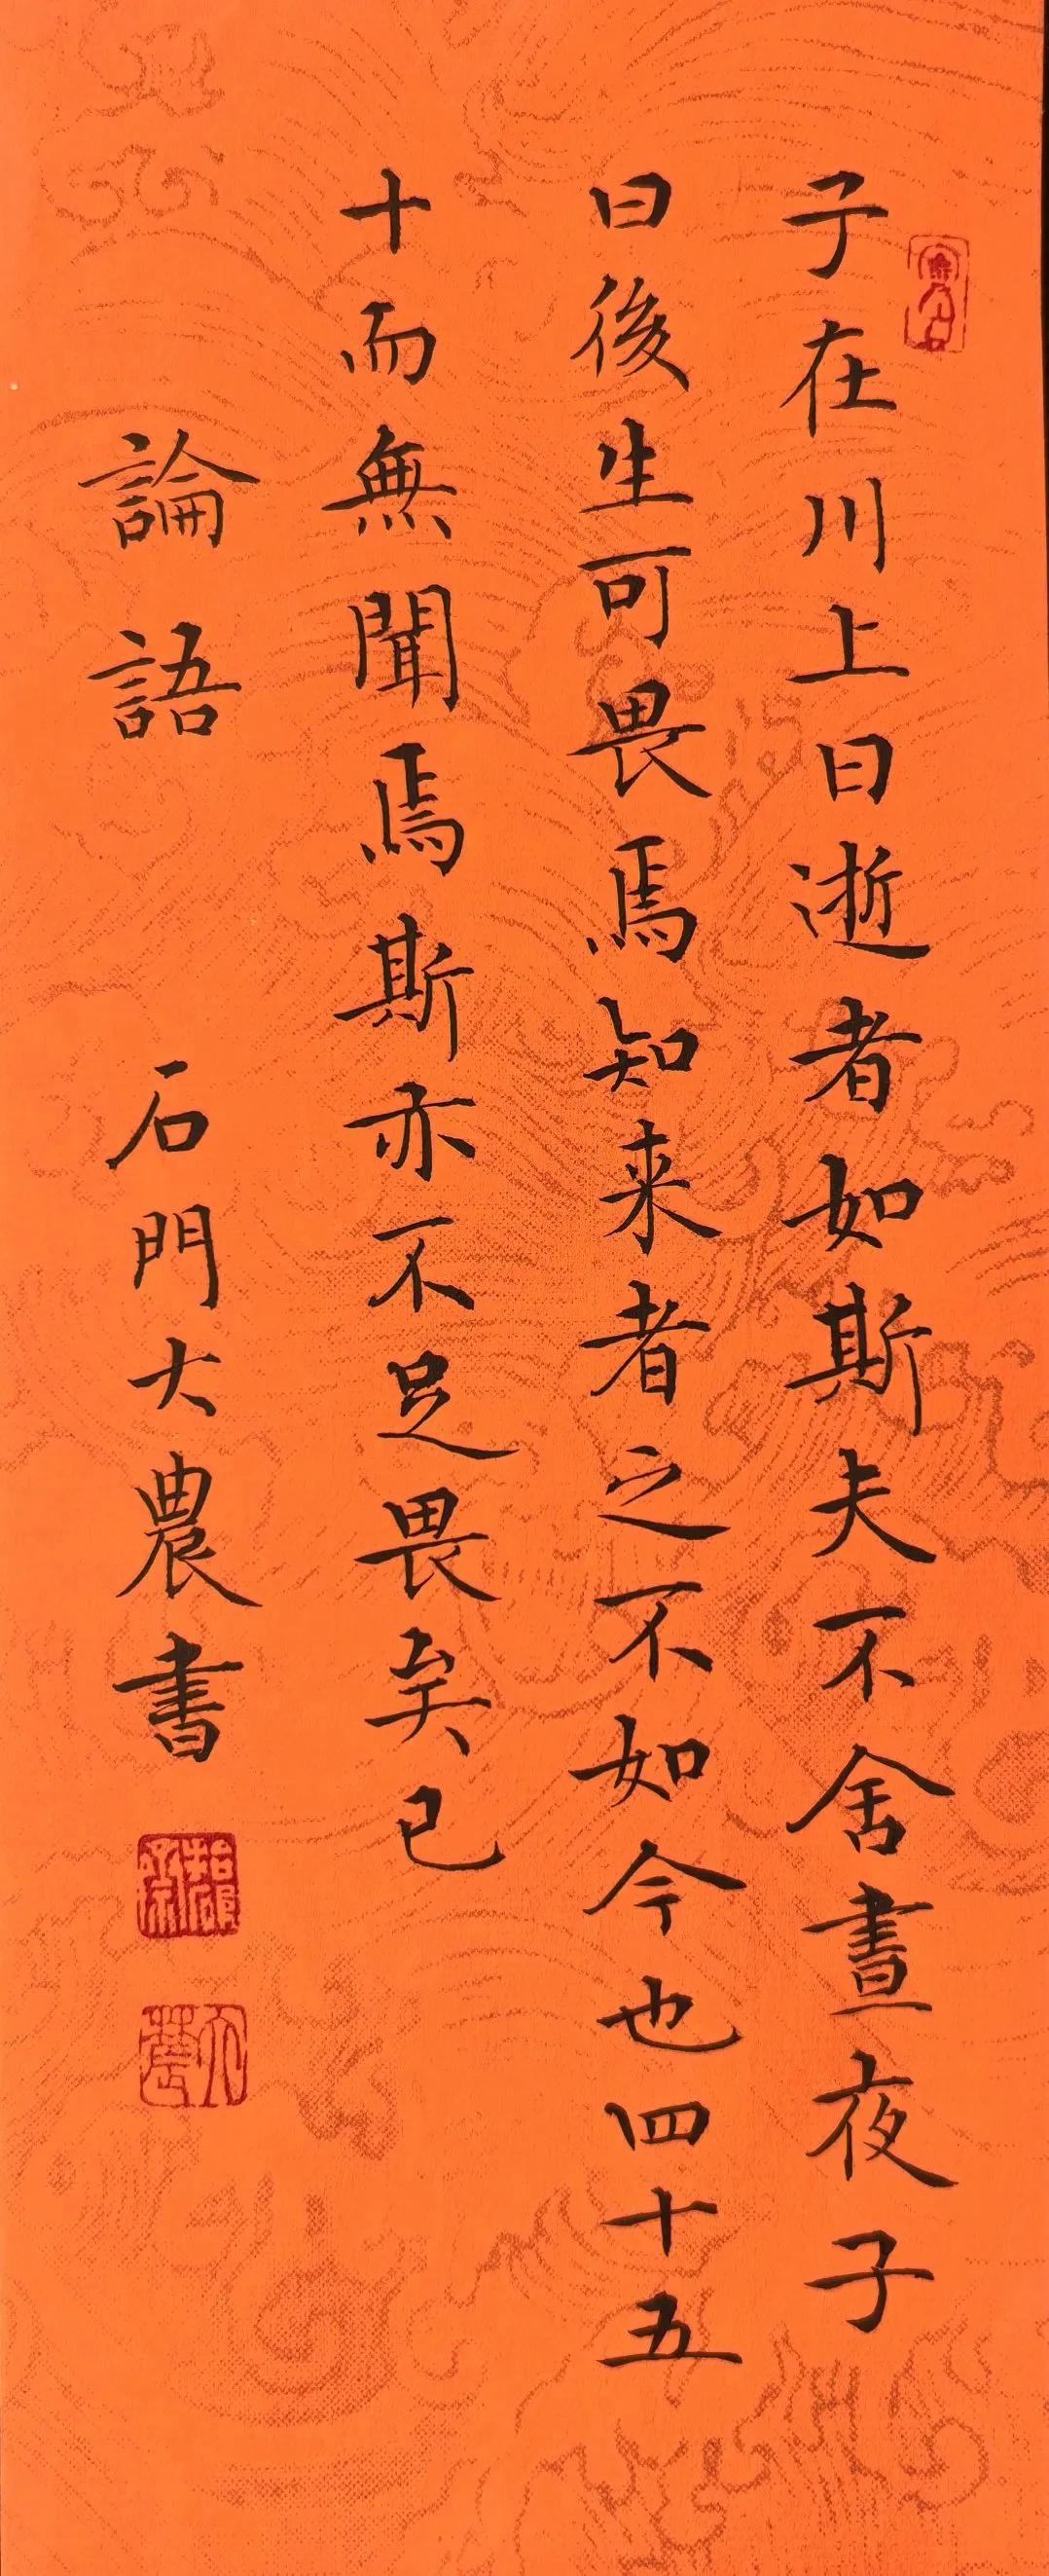 子在川上曰逝者如斯夫不舍晝夜子
曰後生可畏焉知来者之不如今也四十五
十而無聞焉斯亦不足畏矣已
論語 石門大農書
大農